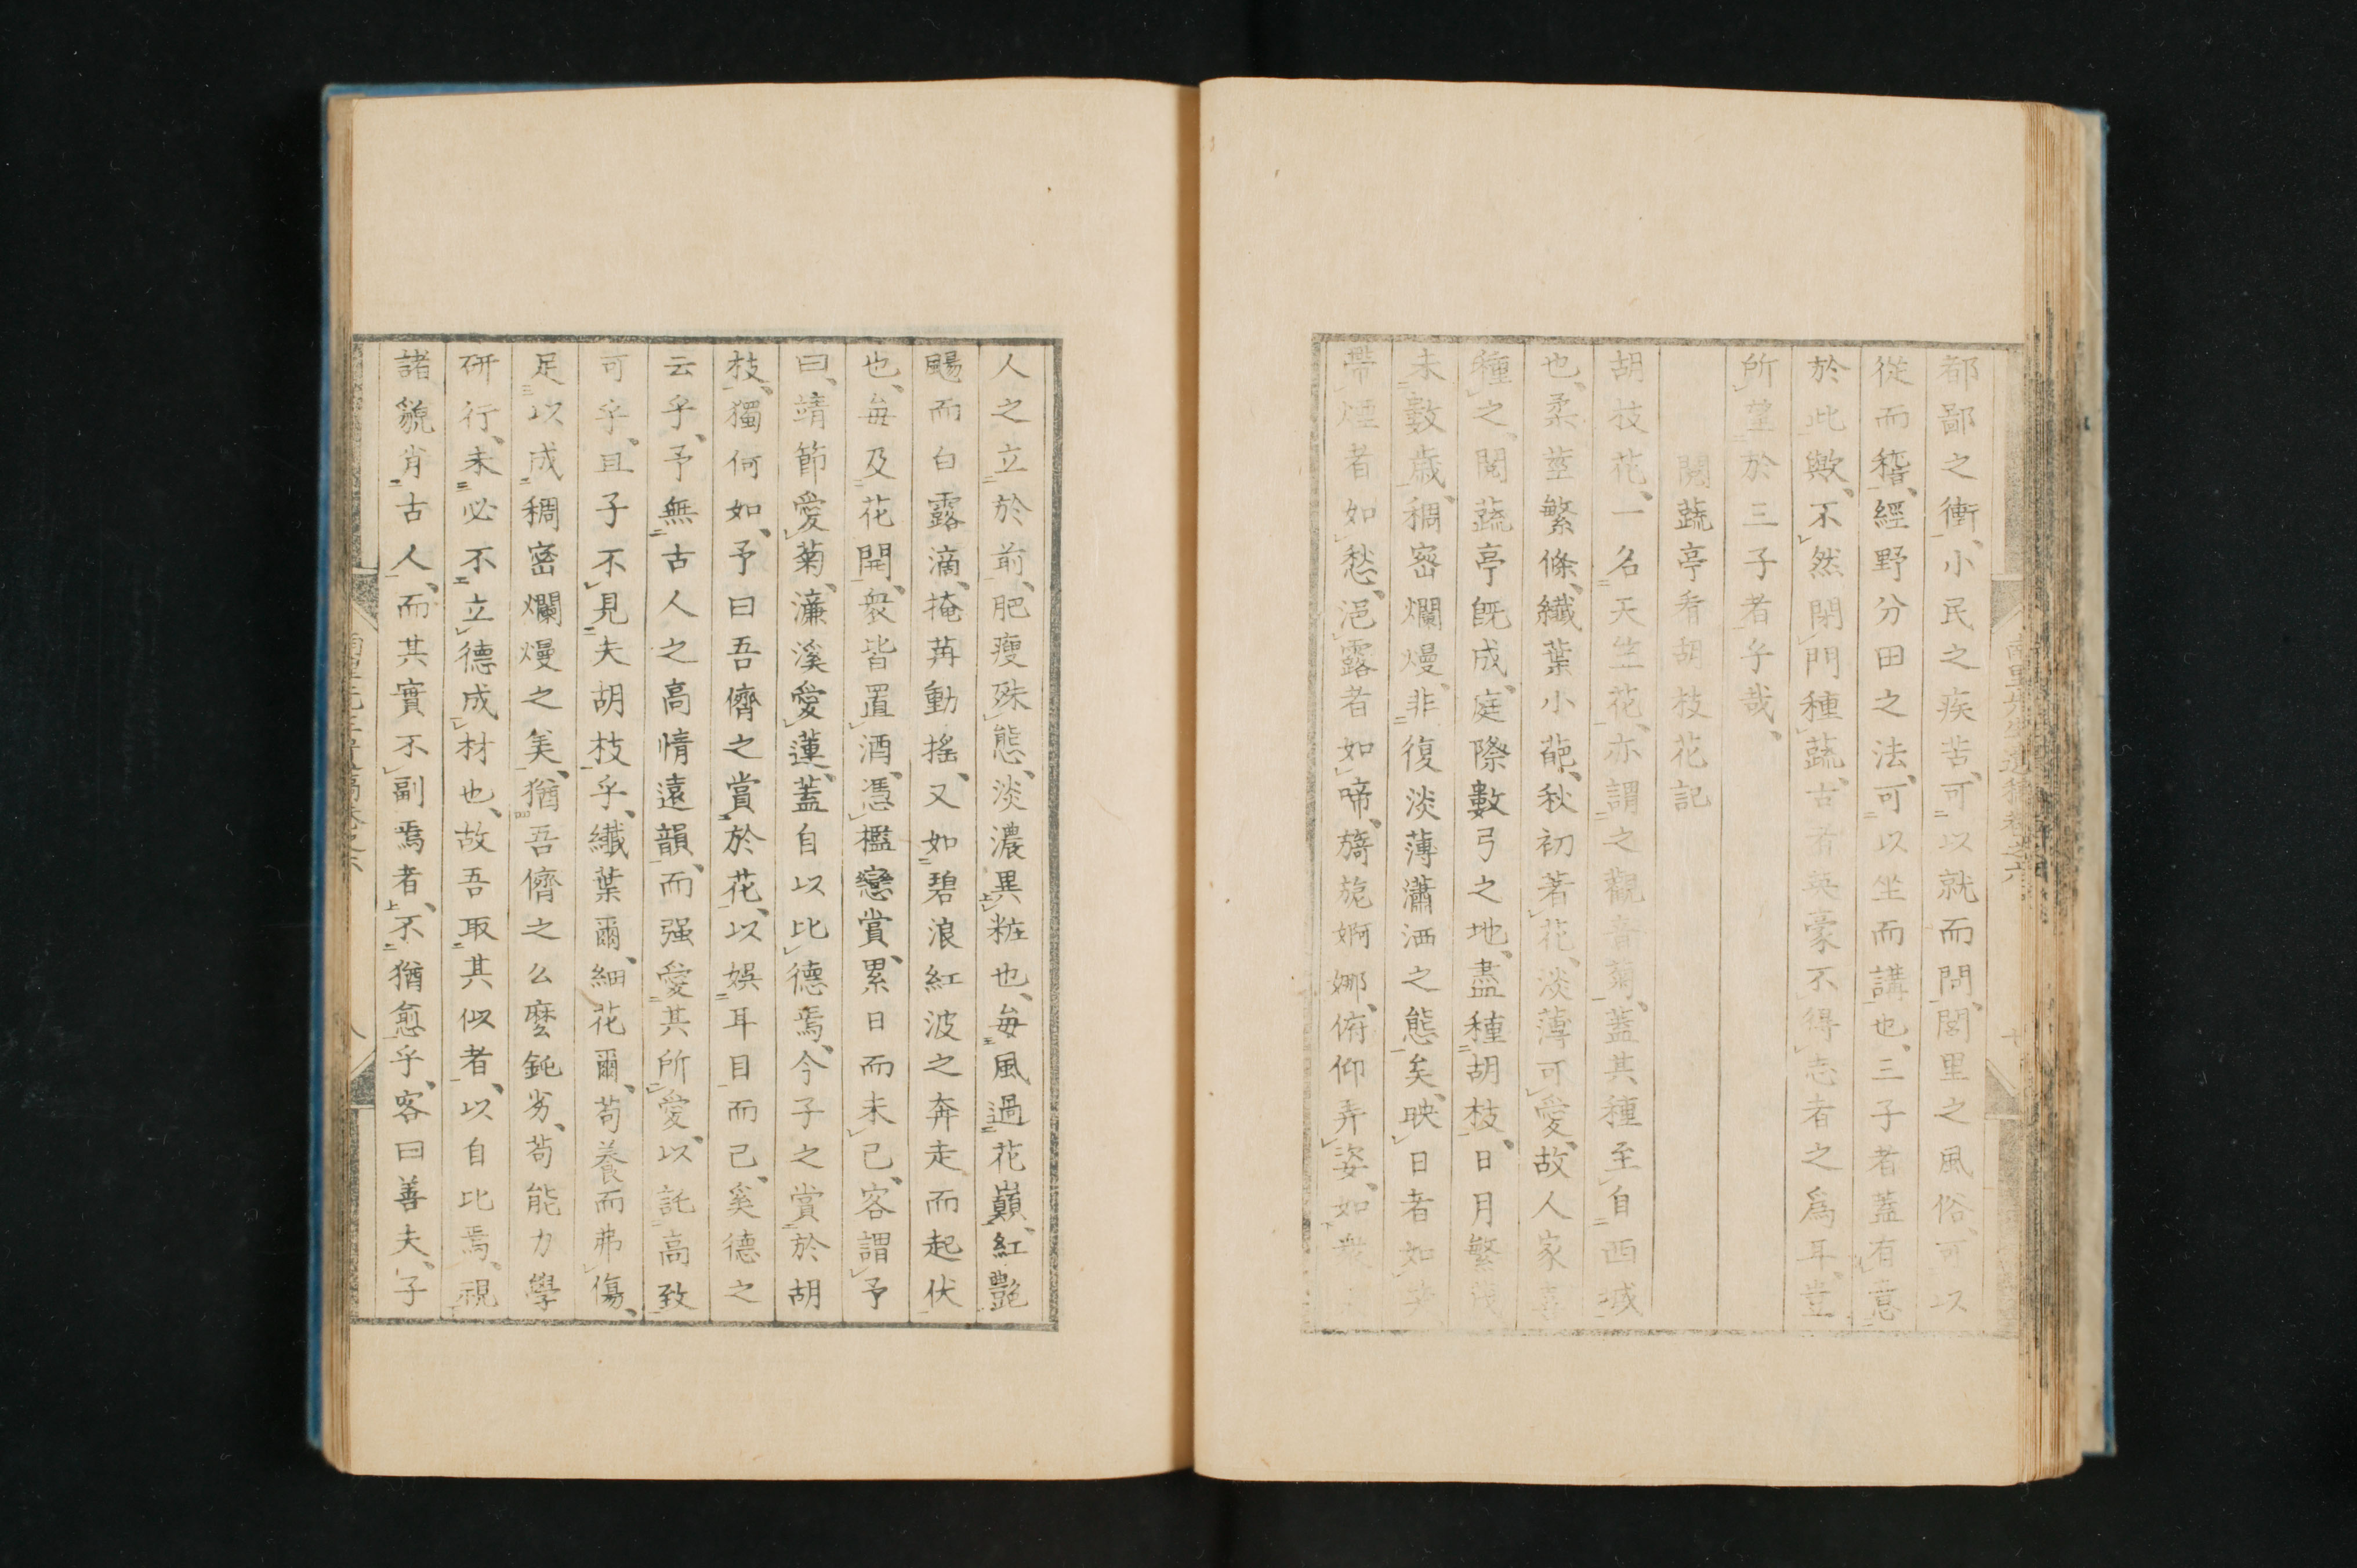 都鄙之衝、小民之疾苦、可以就而問、閭里之風俗、可以
從而稽、經野分田之法、可以坐而講也、三子者蓋有意
於此歟、不然閉門種蔬、古者英豪不得志者之爲耳、豈
所望於三子者乎哉、
閲蔬亭看胡枝花記
胡枝花、一名天竺花、亦謂之觀音菊、蓋其種至自西域
也、柔莖繁條、纖葉小葩、秋初著花、淡薄可愛、故人家喜
種之、閲蔬亭既成、庭際數弓之地、盡種胡枝、日月繁茂
未數歲、稠密爛熳、非復淡薄瀟洒之態矣、映日者如笑
帶煙者如愁、浥露者如啼、旖旎婀娜、俯仰弄姿、如衆
人之立於前、肥瘦殊態、淡濃異粧也、每風過花巔、紅艷
颺而白露滴、掩苒動搖、又如碧浪紅波之奔走而起伏
也、每及花開、衆皆置酒、憑檻戀賞、累日而未已、客謂予
曰、靖節愛菊、濂溪愛蓮、蓋自以比德焉、今子之賞於胡
枝、獨何如、予曰吾儕之賞於花、以娯耳目而已、奚德之
云乎、予無古人之高情遠韻、而强愛其所愛、以託高致
可乎、且子不見夫胡枝乎、纖葉爾、細花爾、苟養而弗傷、
足以成稠密爛熳之美、猶吾儕之么麼鈍劣、苟能力學
研行、未必不立德成材也、故吾取其似者、以自比焉、視
諸貌肖古人、而其實不副焉者、不猶愈乎、客曰善夫、子